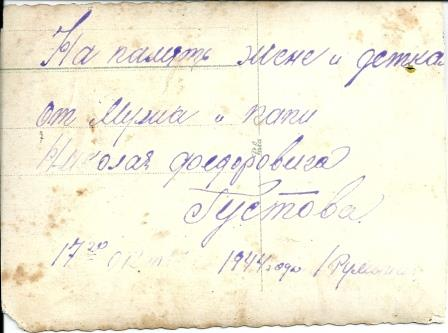 На память жене и детка
от Мужа и папи
Николая федоровича
Густова
17го 1944 года